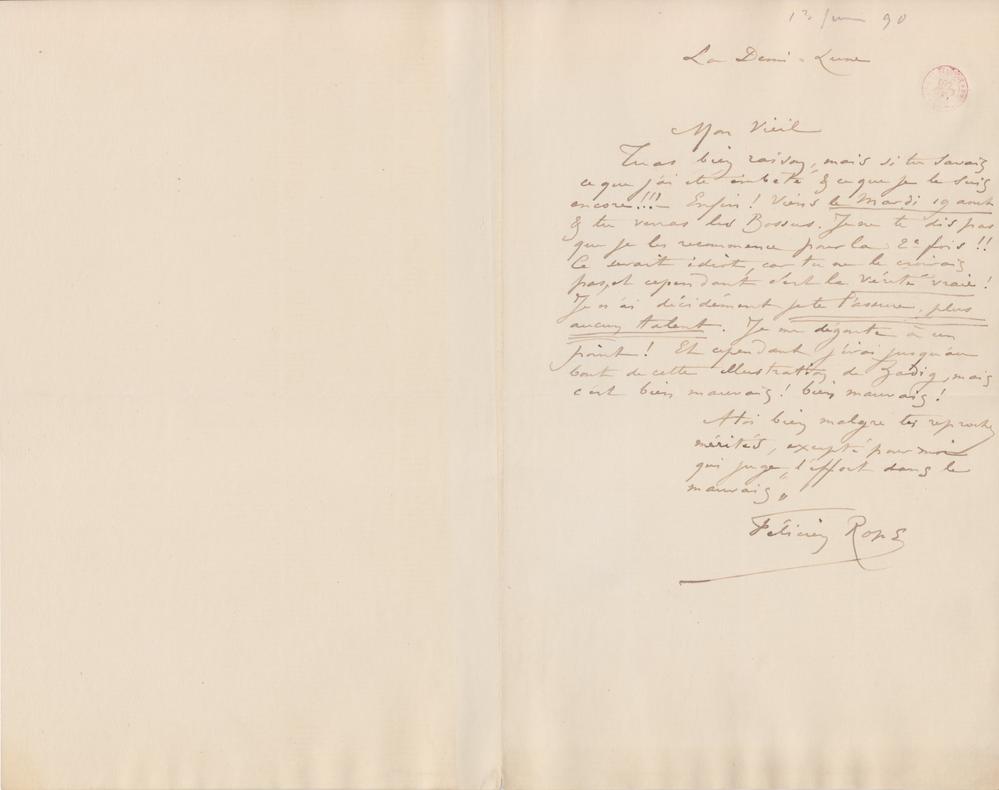 90
La Demi-Lune
Mon Vieil
Tu as bien raison, mais si tu savais
ce que j'ai été embêté & ce que je le suis
encore!!! Enfin! Viens le Mardi 19 aout
& tu verras les Bossus. Je ne te dis pas
que je les recommence pour la 2e fois!!
Ce serait idiot, car tu ne le croirais
pas, et cependant c'est la vérité vraie!
Je n'ai décidément je te l'assure, plus
aucun talent. Je me dégoute à un
point! Et cependant j'irai jusqu'au
bout de cette illustration de Zadig, mais
c'est bien mauvais! bien mauvais!
A toi bien malgré tes reproches
mérités, excepté pour moi
qui juge „l'effort dans le
mauvais„
Félicien Rops